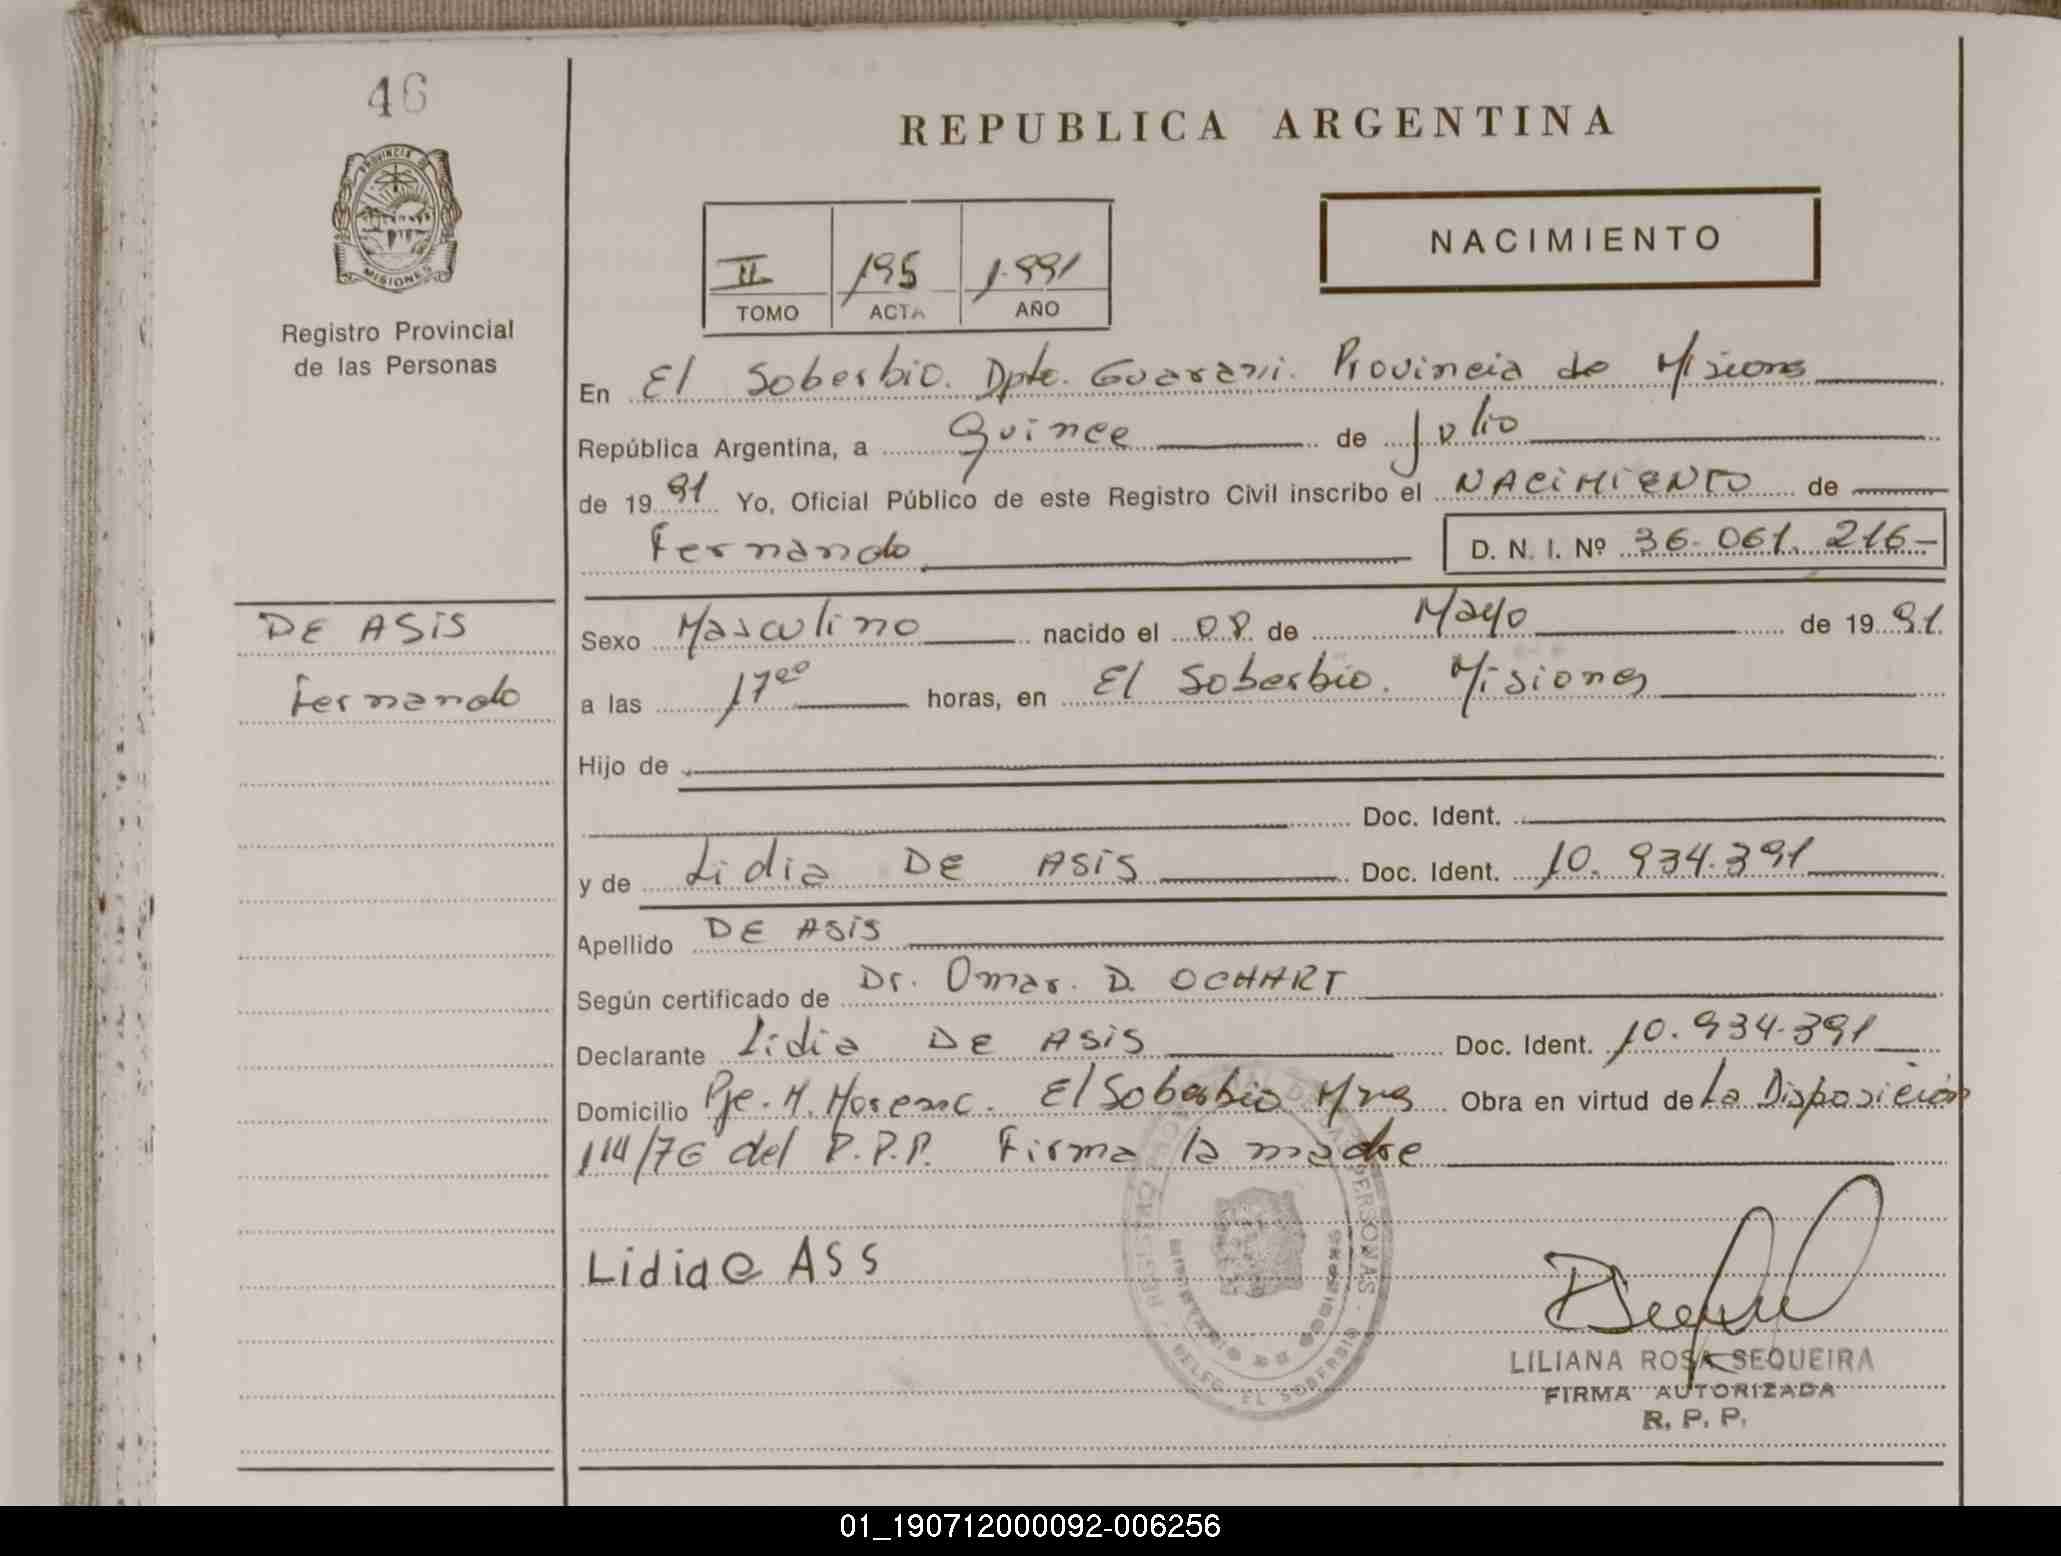 46
PROVINCIA DE
MISIONES
Registro Provincial
de las Personas
REPUBLICA ARGENTINA
II 195 1.991
TOMO ACTA AÑO
NACIMIENTO
En El Soberbio. Dpto. Guarani. Provincia de Misiones
República Argentina, a Quince de Julio
de 19 91 Yo, Oficial Público de este Registro Civil inscribo el NACIMIENTO de
Fernando D. N. I. Nº 36.061.216-
DE ASIS
Fernando
Sexo Masculino nacido el 08 de Mayo de 19 91.
a las 17 00 horas, en El Soberbio. Misiones
Hijo de
Doc. Ident.
y de Lidia DE ASIS Doc. Ident. 10.934.391
Apellido DE ASIS
Según certificado de Dr. Omar. D. OCHART
Declarante Lidia DE ASIS Doc. Ident. 10.934.391
Domicilio Pje. M. Moreno. El Soberbio Mnes Obra en virtud de La Disposición
/76 del R.P.P. Firma la madre
Lidia ASS
PERSONAS
MISIONES
DELEG. EL SOBERBIO
LILIANA ROSA SEQUEIRA
FIRMA AUTORIZADA
R. P. P.
01_190712000092-006256